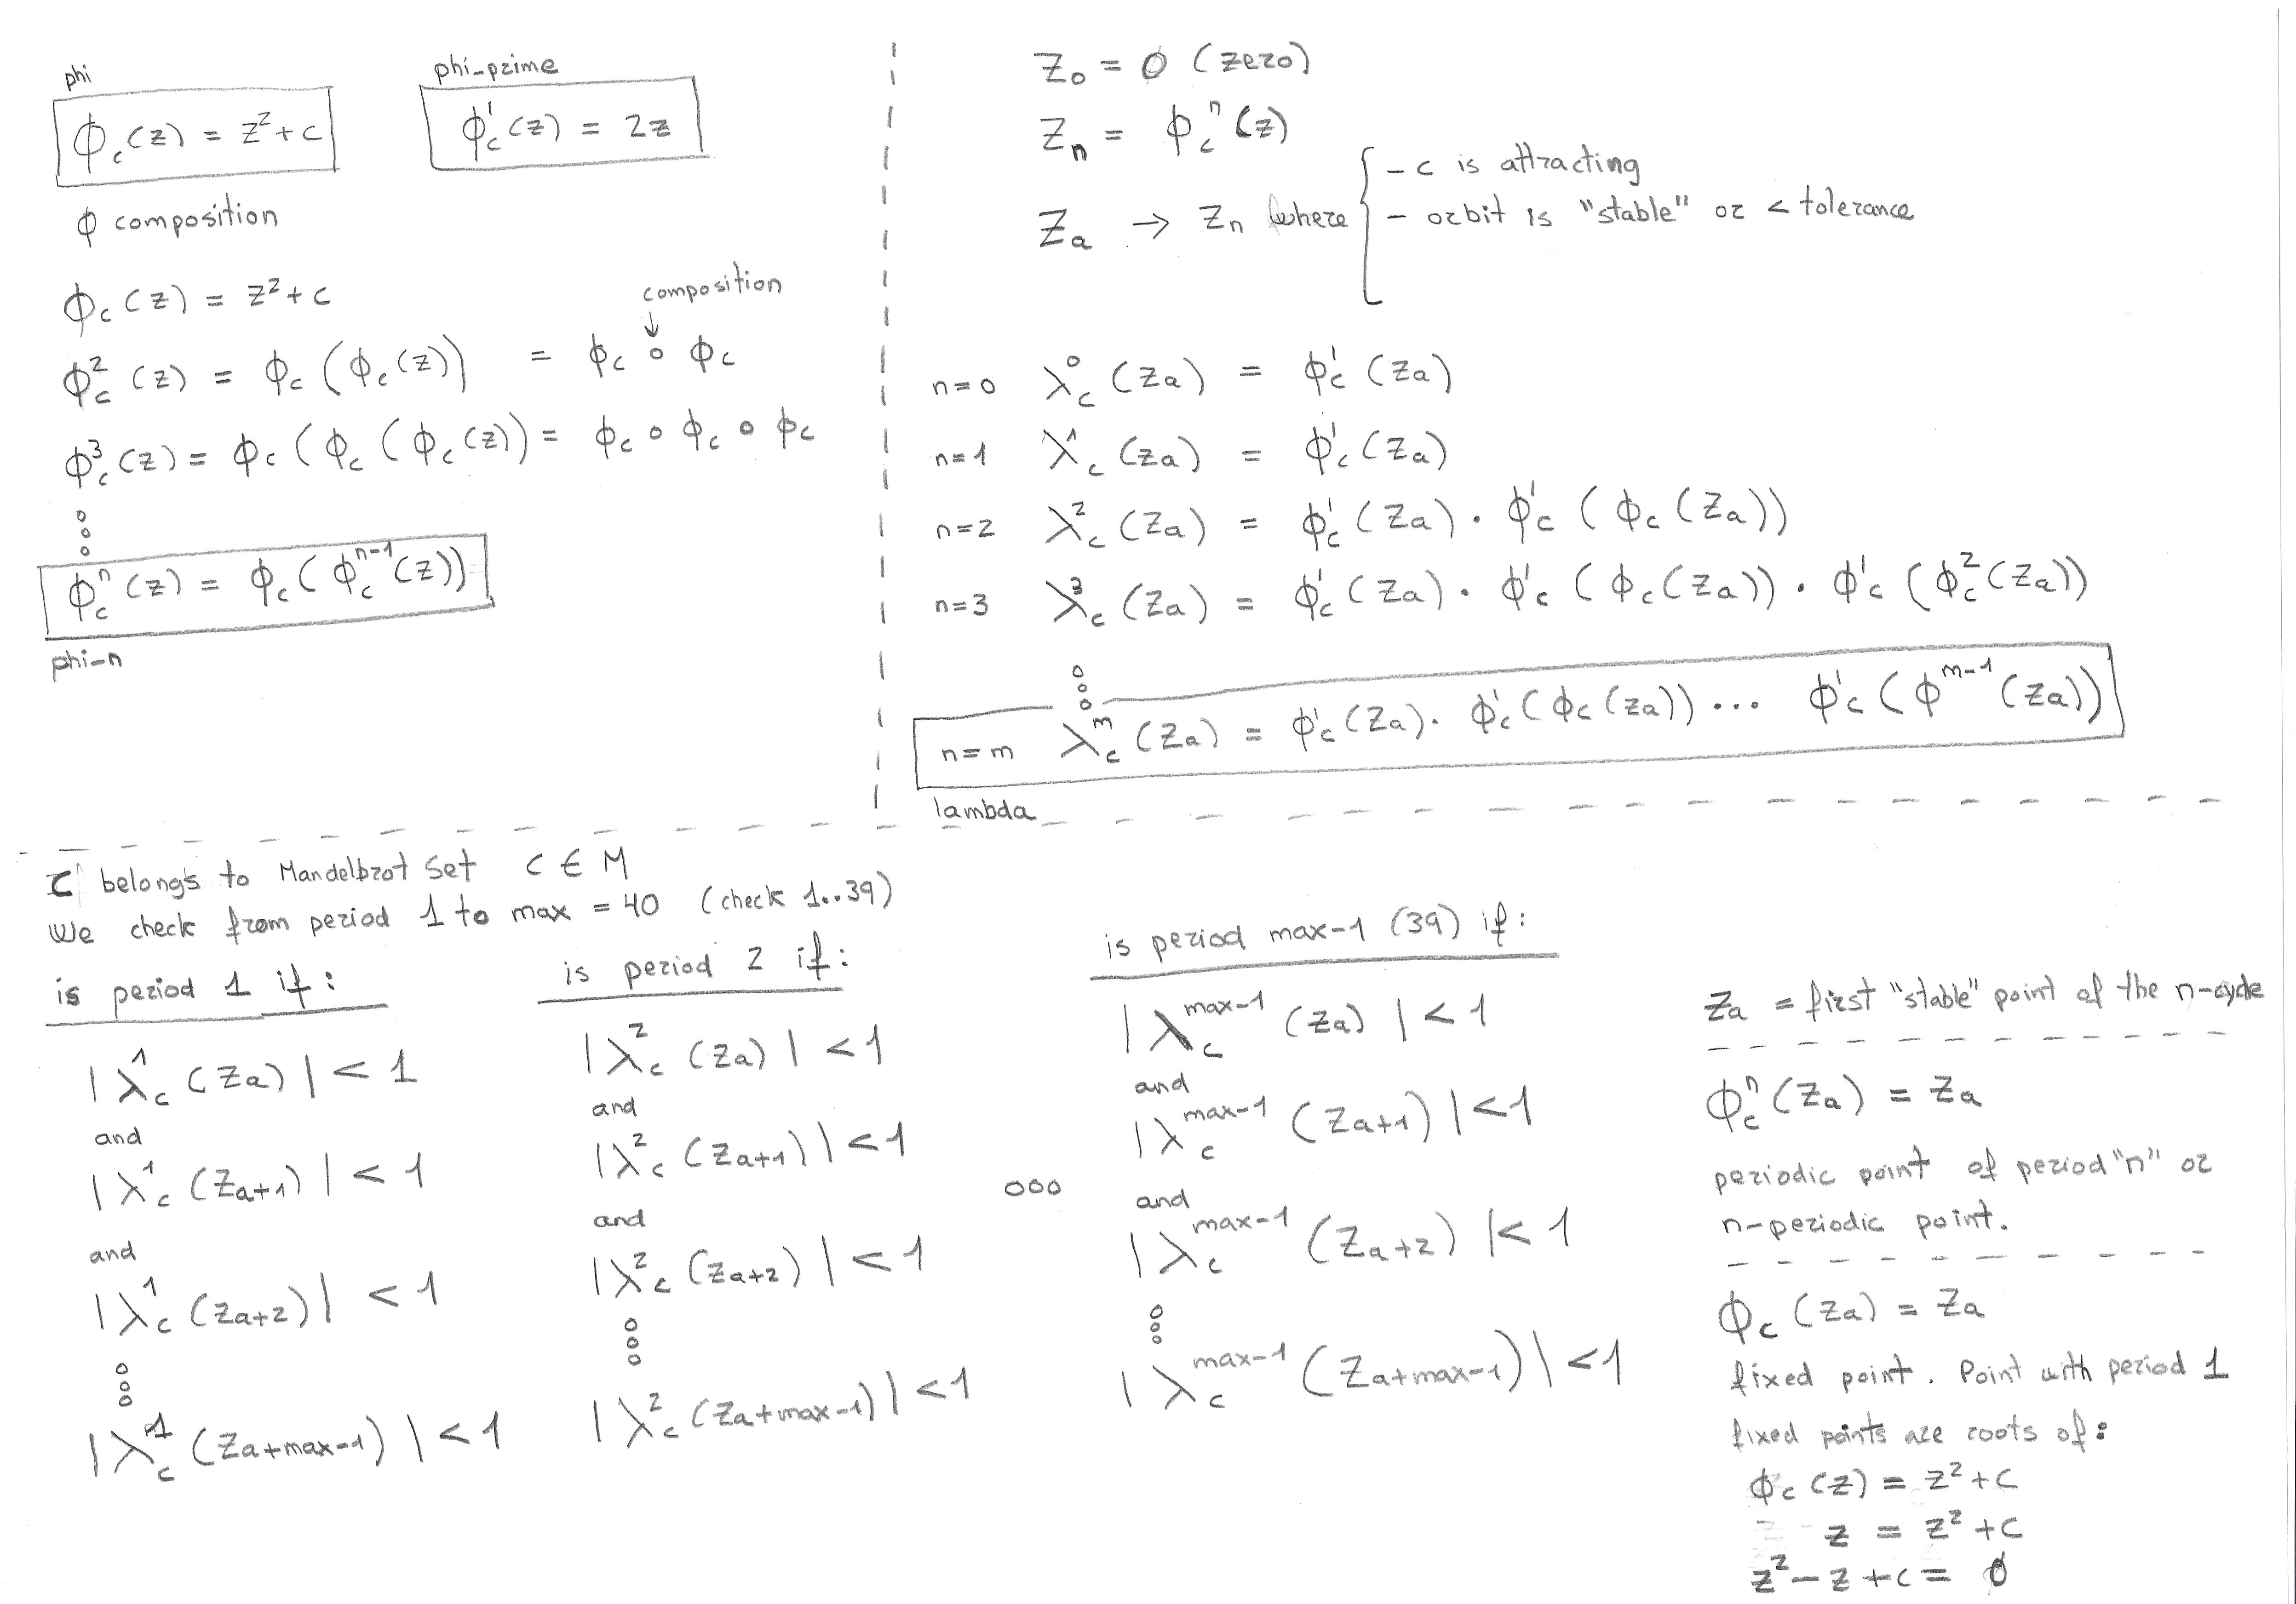 phi
ϕc(z) = z²+c
phi-prime
ϕ'c(z) = 2z
ϕ composition
ϕc(z) = z²+c
composition
ϕ²c(z) = ϕc(ϕc(z)) = ϕc ∘ ϕc
ϕ³c(z) = ϕc(ϕc(ϕc(z)) = ϕc ∘ ϕc ∘ ϕc
ϕⁿc(z) = ϕc(ϕc^n-1(z))
phi-n
Z₀ = 0 (zero)
Zn = ϕcⁿ(z)
Za → Zn where
- c is attracting
- orbit is "stable" or < tolerance
n=0 λ⁰c(Za) = ϕ'c(Za)
n=1 λ¹c(Za) = ϕ'c(Za)
n=2 λ²c(Za) = ϕ'c(Za) · ϕ'c(ϕc(Za))
n=3 λ³c(Za) = ϕ'c(Za) · ϕ'c(ϕc(Za)) · ϕ'c(ϕ²c(Za))
n=m λᵐc(Za) = ϕ'c(Za) · ϕ'c(ϕc(Za)) ... ϕ'c(ϕ^m-1(Za))
lambda
C belongs to Mandelbrot Set C ∈ M
We check from period 1 to max = 40 (check 1..39)
is period 1 if:
|λ¹c(Za)| < 1
and
|λ¹c(Za+1)| < 1
and
|λ¹c(Za+2)| < 1
|λ¹c(Za+max-1)| < 1
is period 2 if:
|λ²c(Za)| < 1
and
|λ²c(Za+1)| < 1
and
|λ²c(Za+2)| < 1
|λ²c(Za+max-1)| < 1
ooo
is period max-1 (39) if:
|λc^max-1(Za)| < 1
and
|λc^max-1(Za+1)| < 1
and
|λc^max-1(Za+2)| < 1
|λc^max-1(Za+max-1)| < 1
Za = first "stable" point of the n-cycle
ϕⁿc(Za) = Za
periodic point of period "n" or
n-periodic point.
ϕc(Za) = Za
fixed point. Point with period 1
fixed points are roots of:
ϕc(z) = z²+c
z = z²+c
z²-z+c = 0